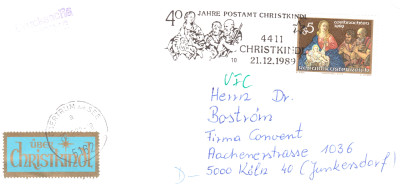 40 JAHRE POSTAMT CHRISTKINDL
4411
CHRISTKINDL
21.12.1989
10
S5
REPUBLIK ÖSTERREICH
VIC
Herrn Dr.
Boström
Firma Convent
Aachenerstrasse 1036
D- 5000 Köln 40 (Junkersdorf)
ÜBER
CHRISTKINDL